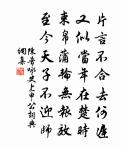 片言不合去何遲
又似當年在楚時
束帛蒲輪無報放
至今天子不迎師
陳普咏史上申公詞典
網集